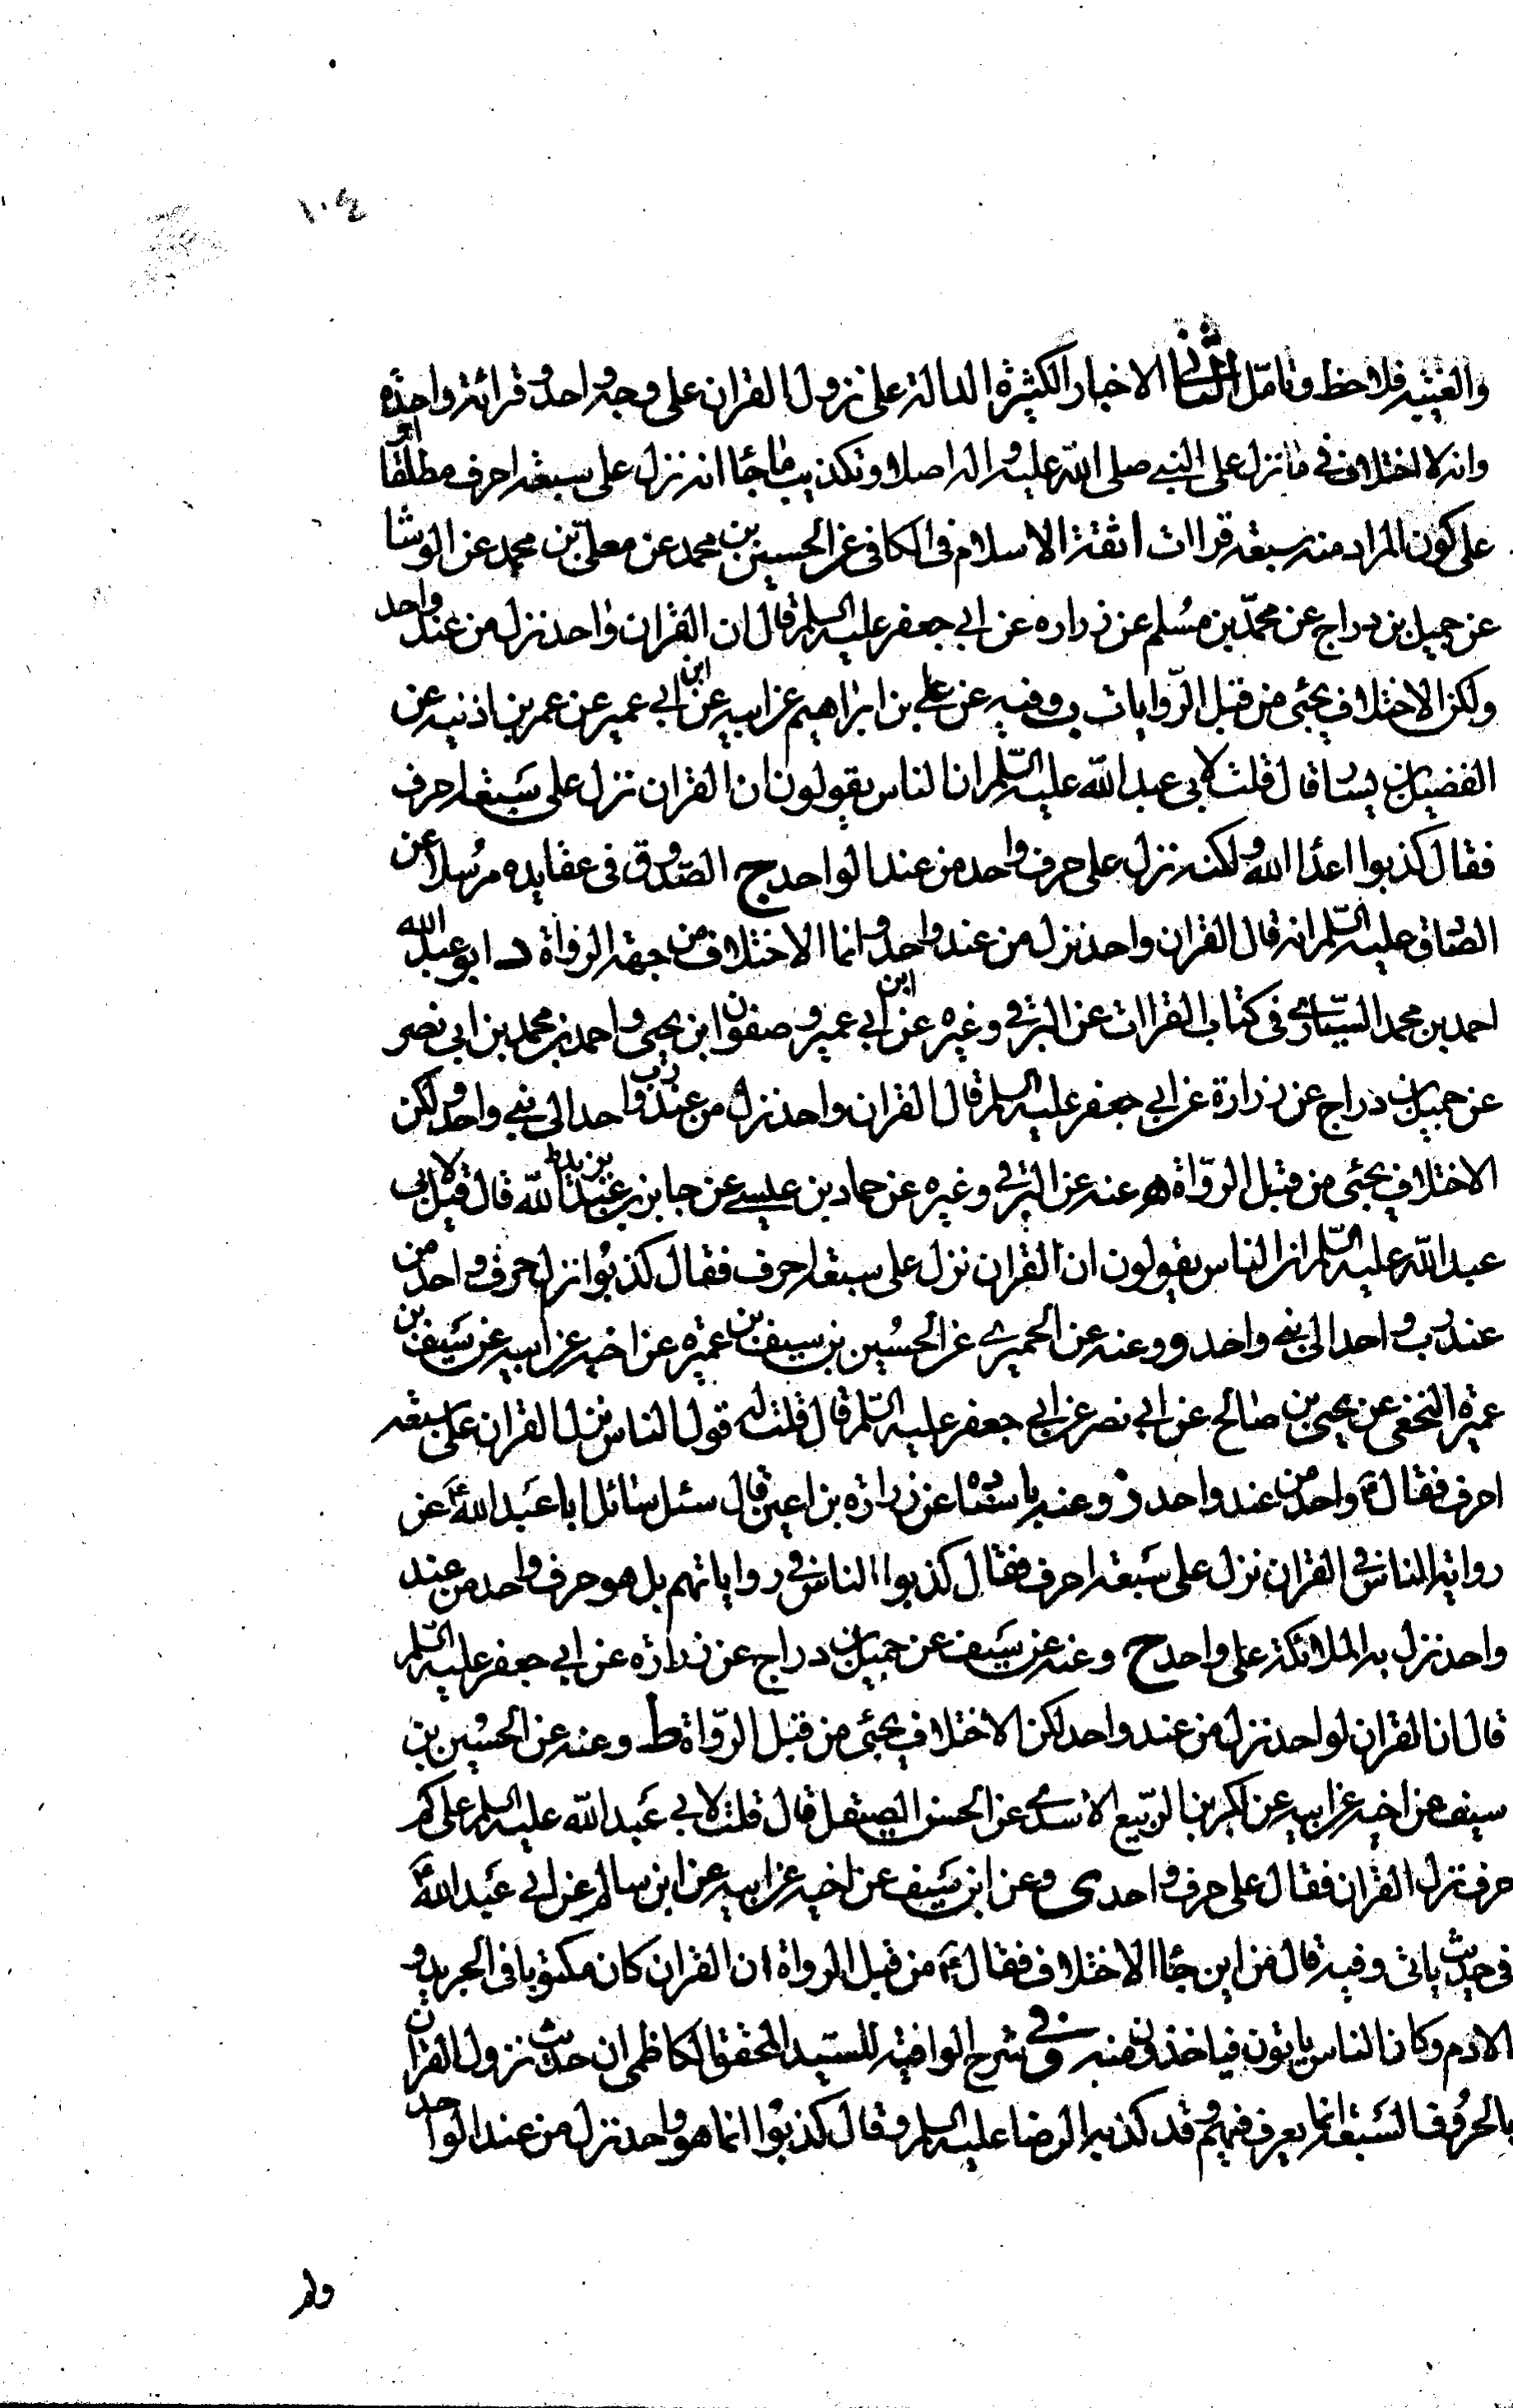 ١٠٤
والغيبه فلاحظ وتامّل الثاني الاخبار الكثيرة الدالة على نزول القران على وجه واحد وقرائة واحدة
وانه لا اختلاف في ما نزل على النبي صلى الله عليه واله اصلا وتكذيب ما جا انه نزل على سبعة احرف مطلقا او
على كون المراد منه سبعة قراات ا ثقة الاسلام في الكافي عن الحسين بن محمد عن معلى بن محمد عن الوشا
عن جميل بن دراج عن محمّد بن مسلم عن زراره عن ابي جعفر عليه السلم قال ان القران واحد نزل من عند واحد
ولكن الاختلاف يجئ من قبل الرّوايات ب وفيه عن علي بن ابراهيم عن ابيه عن ابن ابي عمير عن عمر بن اذنيه عن
الفضيل بن يسار قال قلت لابي عبد الله عليه السّلم ان الناس يقولون ان القران نزل على سبعة احرف
فقال كذبوا اعدا الله ولكنه نزل على حرف واحد من عند الواحد ج الصّدوق في عقايده مرسلا عن
الصّادق عليه السّلم انه قال القران واحد نزل من عند واحد وانما الاختلاف من جهة الرواة د ابو عبد الله
احمد بن محمد السيّاري في كتاب القراات عن البرقي وغيره عن ابن ابي عمير و صفوان ابن يحيى و احمد بن محمد بن ابي نصر
عن جميل بن دراج عن زرارة عن ابي جعفر عليه السلم قال القران واحد نزل من عند رب واحد الى نبي واحد ولكن
الاختلاف يجئ من قبل الروّاة ه وعنه عن البرقي وغيره عن حماد بن عيسى عن جابر بن عبد الله قال قيل لابي
عبد الله عليه السّلم ان الناس يقولون ان القران نزل على سبعة احرف فقال كذبوا نزل حرف واحد من
عند رب واحد الى نبي واحد و وعنه عن الحميري عن الحسين بن سيف بن عميره عن اخيه عن ابيه عن سيف بن
عميرة النخعي عن يحيى بن صالح عن ابي نصر عن ابي جعفر عليه السّلم قال قلت له قول الناس نزل القران على سبعة
احرف فقال ع واحد من عند واحد ز وعنه باسناده عن زرارة بن اعين قال سئل سائل ابا عبد الله ع عن
رواية الناس في القران نزل على سبعة احرف فقال كذبوا الناس في رواياتهم بل هو حرف واحد من عند
واحد نزل به الملائكة على واحد ح وعنه عن سيف عن جميل بن دراج عن زرارة عن ابي جعفر عليه السّلم
قال ان القران لواحد نزل من عند واحد لكن الاختلاف يجئ من قبل الرّواة ط وعنه عن الحسين بن
سيف عن اخيه عن ابيه عن بكر بن الربيع الاسدي عن الحسن الصيقل قال قلت لابي عبد الله عليه السلم على كم
حرف نزل القران فقال على حرف واحد ى وعن ابن سيف عن اخيه عن ابيه عن ابن سالم عن ابي عبد الله ع
في حديث ياتي وفيه قال فمن اين جا الاختلاف فقال ع من قبل الرواة ان القران كان مكتوبا في الجريد و
الادم وكان الناس ياتون فياخذون منه وفي شرح الوافية للسيد المحقق الكاظمي ان حديث نزول القران
بالحروف السبعة انما يعرف فيهم وقد كذبه الرضا عليه السلم وقال كذبوا انما هو واحد نزل من عند الواحد
ولم